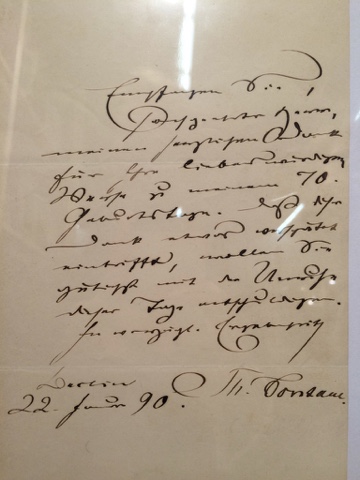 Empfangen Sie,
Hochgeehrter Herr,
meinen herzlichen Dank
für Ihre liebenswürdigen
Worte zu meinem 70.
Geburtstage. Daß dieser
Dank etwas verspätet
eintrifft, wollen Sie
gütigst mit der Unruhe
dieser Tage entschuldigen.
In vorzügl. Ergebenheit
Berlin
22. Janr 90.
Th. Fontane.